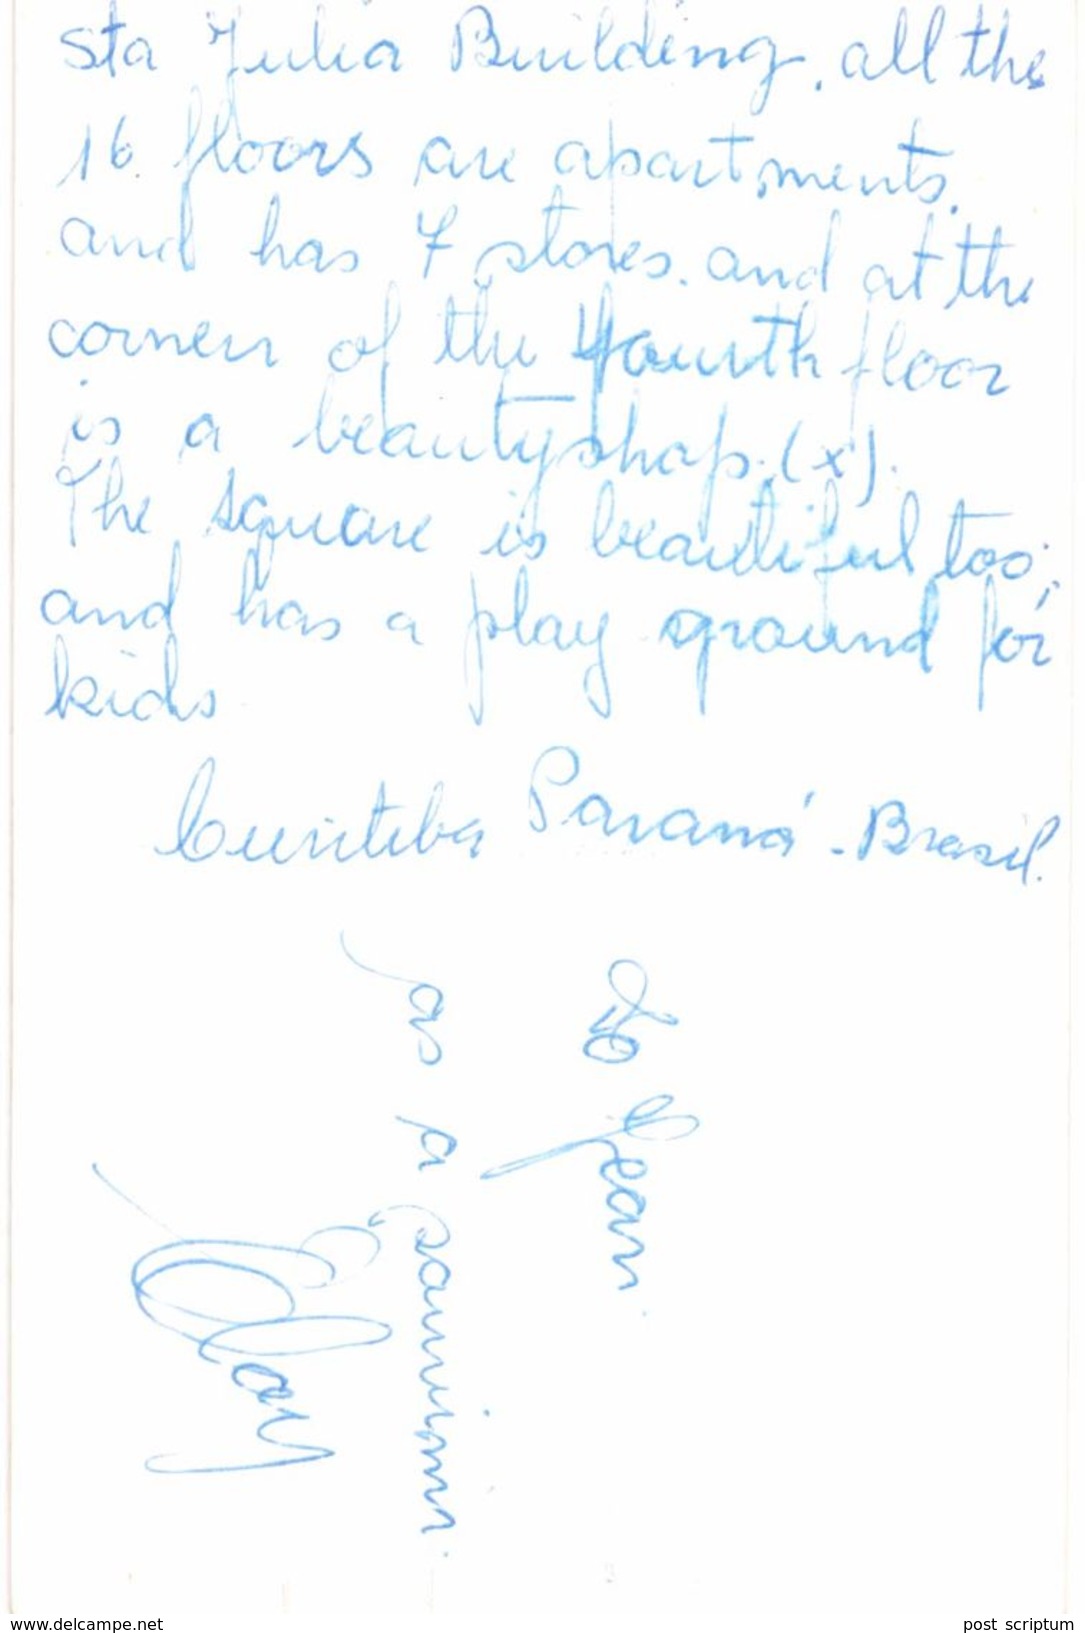 Sta Julia Building, all the
16 floors are apartments,
and has 7 stores. and at the
corner of the fourth floor
is a beautyshop. (x).
The square is beautiful too,
and has a play ground for
kids
Curitiba Paraná - Brasil.
To Jean
as a
www.delcampe.net
post scriptum